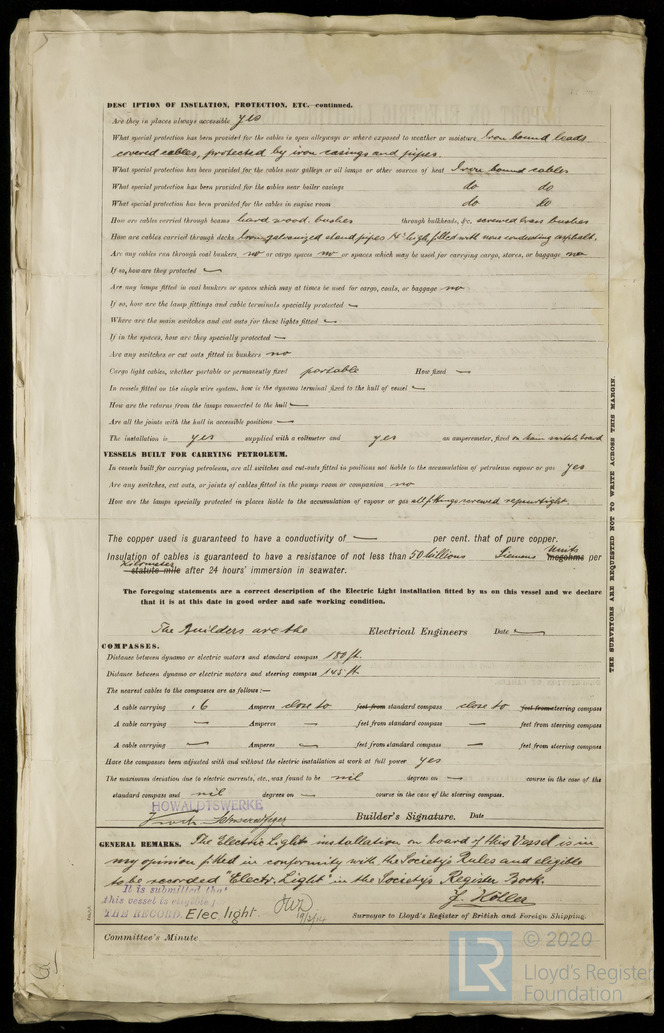 DESC IPTION OF INSULATION, PROTECTION, ETC.—continued.
Are they in places always accessible yes
What special protection has been provided for the cables in open alleyways or where exposed to weather or moisture Iron bound leads
covered cables, protected by iron casings and pipes.
What special protection has been provided for the cables near galleys or oil lamps or other sources of heat Iron bound cables
What special protection has been provided for the cables near boiler casings do do
What special protection has been provided for the cables in engine room do do
How are cables carried through beams hard wood bushes through bulkheads, &c. screwed brass bushes
How are cables carried through decks Iron galvanized stand pipes high filled with non conducting asphalt.
Are any cables run through coal bunkers no or cargo spaces no or spaces which may be used for carrying cargo, stores, or baggage no
If so, how are they protected —
Are any lamps fitted in coal bunkers or spaces which may at times be used for cargo, coals, or baggage no
If so, how are the lamp fittings and cable terminals specially protected —
Where are the main switches and cut outs for these lights fitted —
If in the spaces, how are they specially protected —
Are any switches or cut outs fitted in bunkers no
Cargo light cables, whether portable or permanently fixed portable How fixed —
In vessels fitted on the single wire system, how is the dynamo terminal fixed to the hull of vessel —
How are the returns from the lamps connected to the hull —
Are all the joints with the hull in accessible positions —
The installation is yes supplied with a voltmeter and yes an amperemeter, fixed on main switch board
VESSELS BUILT FOR CARRYING PETROLEUM.
In vessels built for carrying petroleum, are all switches and cut-outs fitted in positions not liable to the accumulation of petroleum vapour or gas yes
Are any switches, cut outs, or joints of cables fitted in the pump room or companion no
How are the lamps specially protected in places liable to the accumulation of vapour or gas all fittings screwed vapourtight
The copper used is guaranteed to have a conductivity of — per cent. that of pure copper.
Insulation of cables is guaranteed to have a resistance of not less than 50 billions Siemens Units megohms per
Kilometer statute mile after 24 hours' immersion in seawater.
The foregoing statements are a correct description of the Electric Light installation fitted by us on this vessel and we declare
that it is at this date in good order and safe working condition.
The Builders are the Electrical Engineers Date —
COMPASSES.
Distance between dynamo or electric motors and standard compass 180 ft.
Distance between dynamo or electric motors and steering compass 145 ft.
The nearest cables to the compasses are as follows:—
A cable carrying .6 Amperes close to feet from standard compass close to feet from steering compass
A cable carrying — Amperes — feet from standard compass — feet from steering compass
A cable carrying — Amperes — feet from standard compass — feet from steering compass
Have the compasses been adjusted with and without the electric installation at work at full power yes
The maximum deviation due to electric currents, etc., was found to be nil degrees on — course in the case of the
standard compass and nil degrees on — course in the case of the steering compass.
HOWALDTSWERKE
Builder's Signature. Date
GENERAL REMARKS. The Electric Light installation on board of this Vessel is in
my opinion fitted in conformity with the Society's Rules and eligible
to be recorded "Electr. Light" in the Society's Register Book.
It is submitted that
this vessel is eligible f
THE RECORD. Elec. light. JWD 19/2/14
J. Höller
Surveyor to Lloyd's Register of British and Foreign Shipping.
Committee's Minute
THE SURVEYORS ARE REQUESTED NOT TO WRITE ACROSS THIS MARGIN.
51
LR © 2020
Lloyd's Register
Foundation